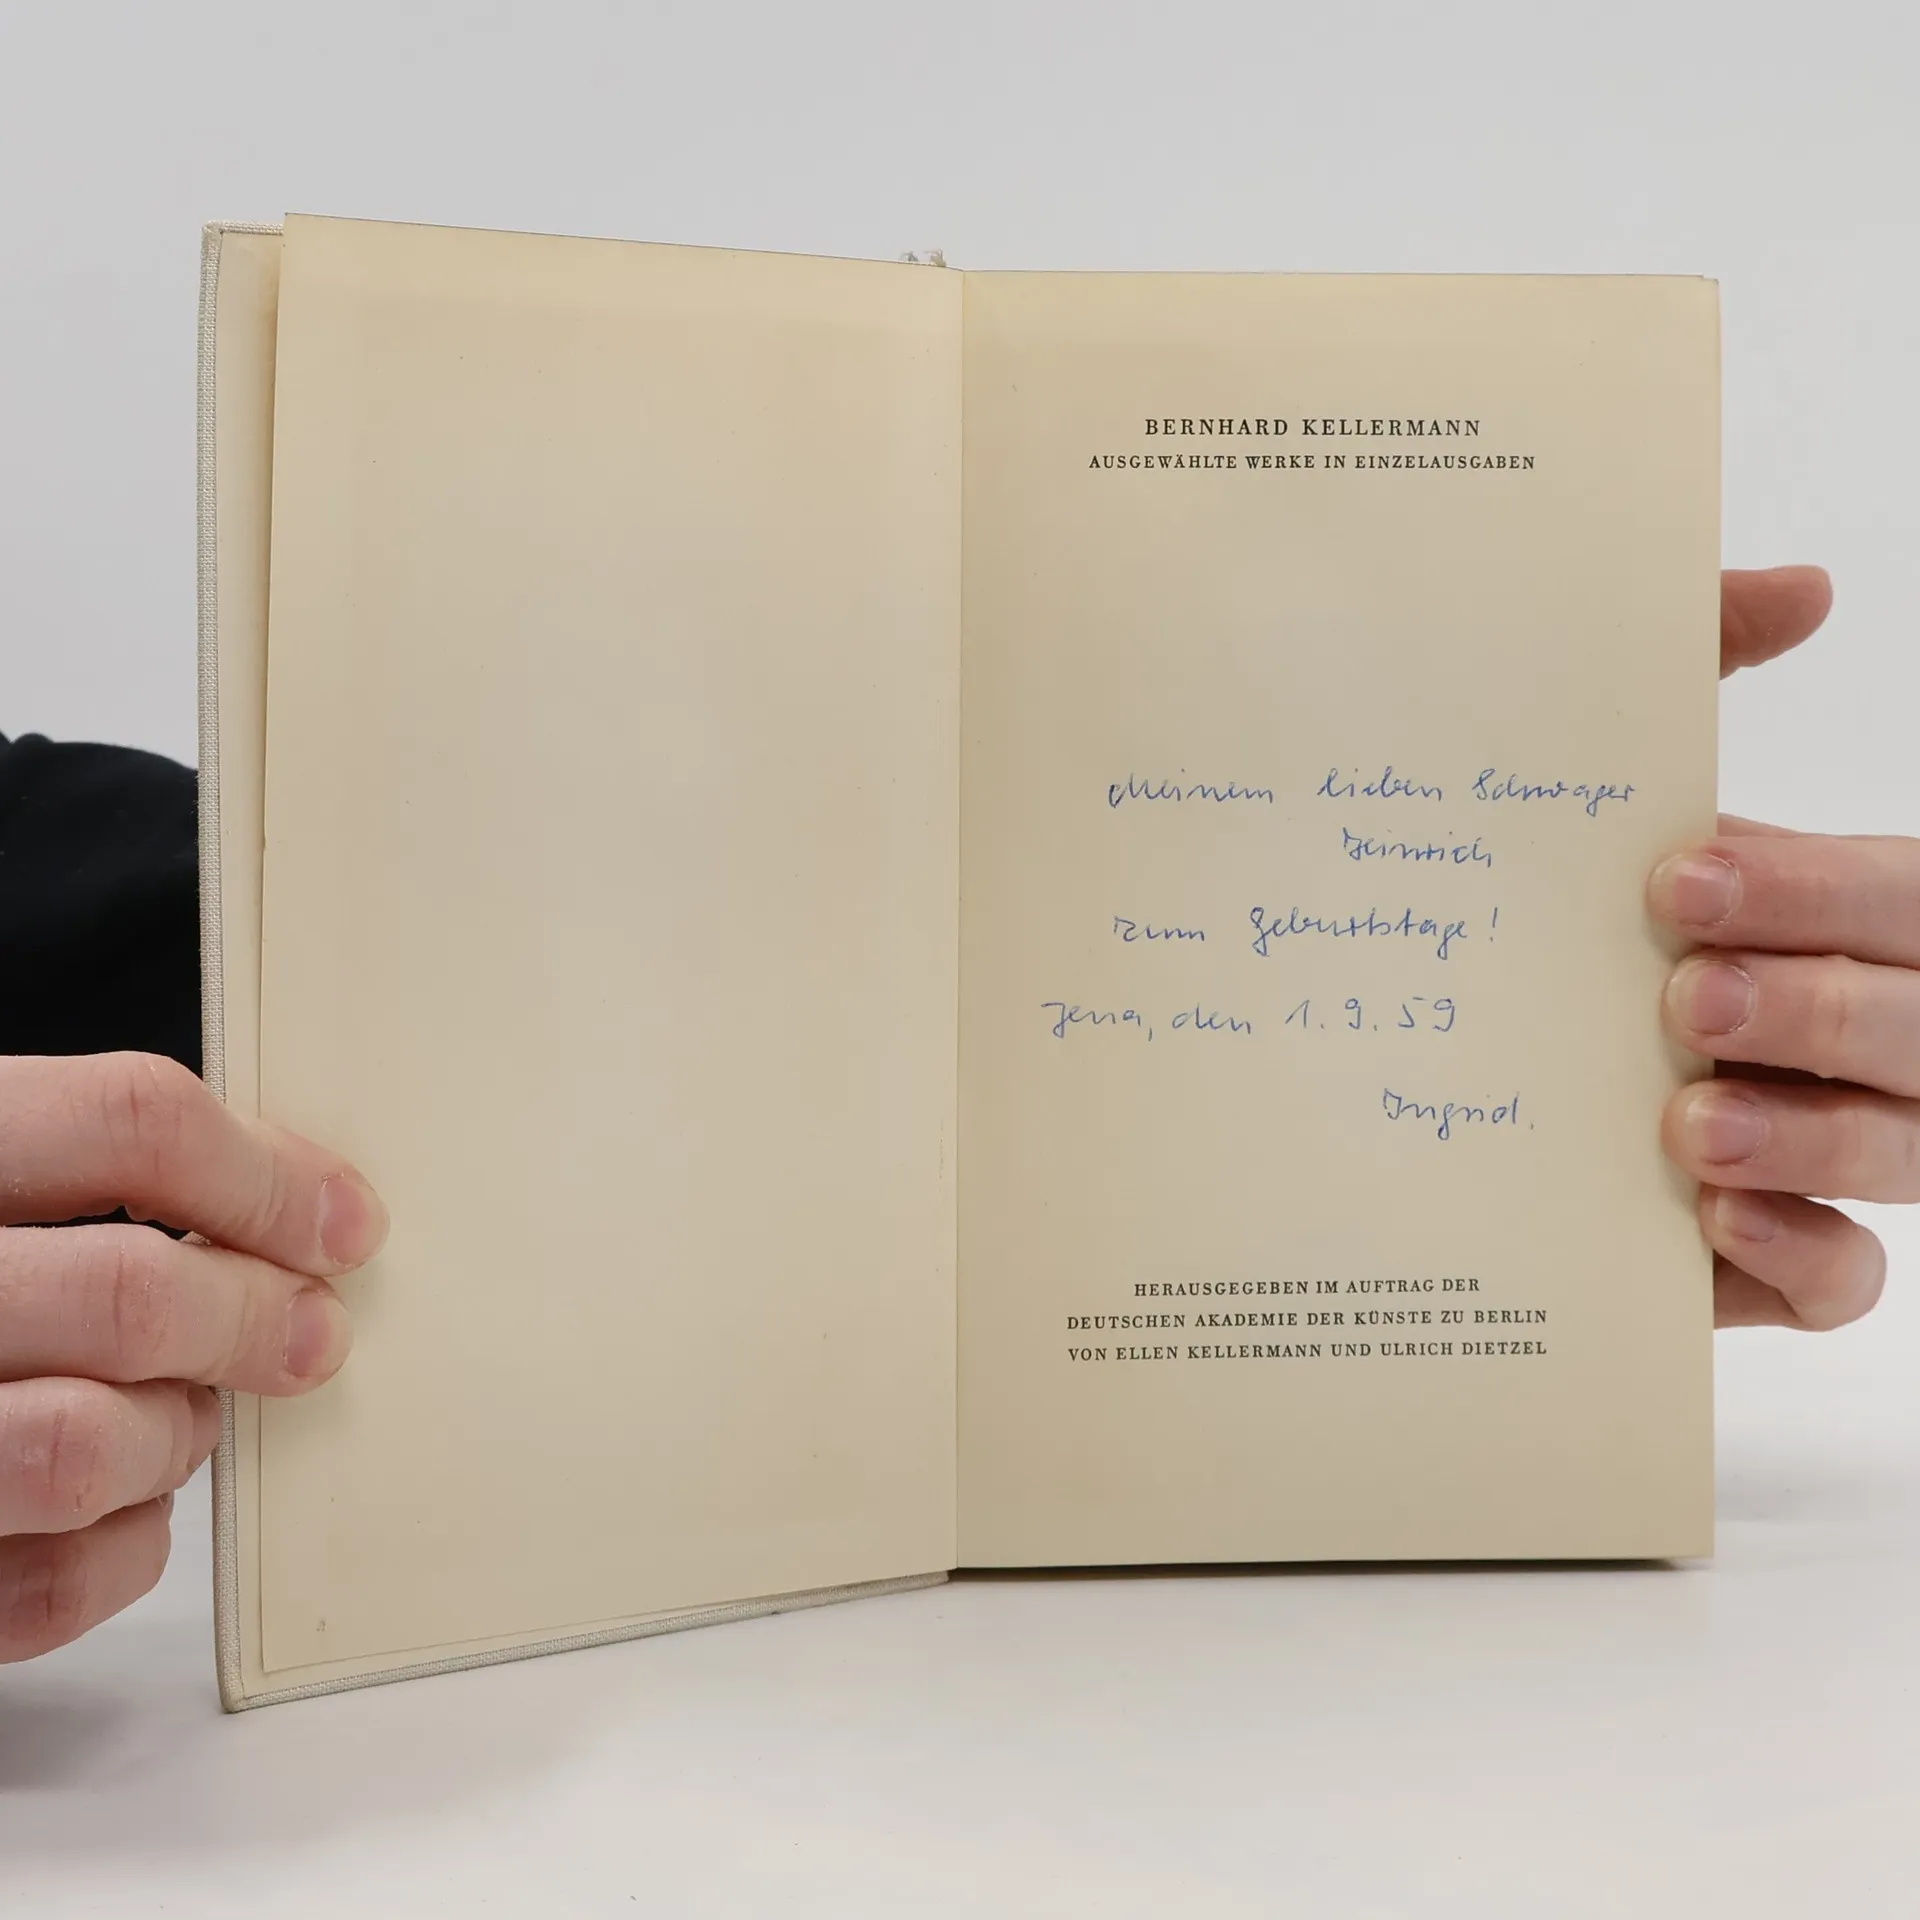 BERNHARD KELLERMANN
AUSGEWÄHLTE WERKE IN EINZELAUSGABEN
Meinem lieben Schwager
Heinrich
zum Geburtstage!
Jena, den 1. 9. 59
Ingrid.
HERAUSGEGEBEN IM AUFTRAG DER
DEUTSCHEN AKADEMIE DER KÜNSTE ZU BERLIN
VON ELLEN KELLERMANN UND ULRICH DIETZEL